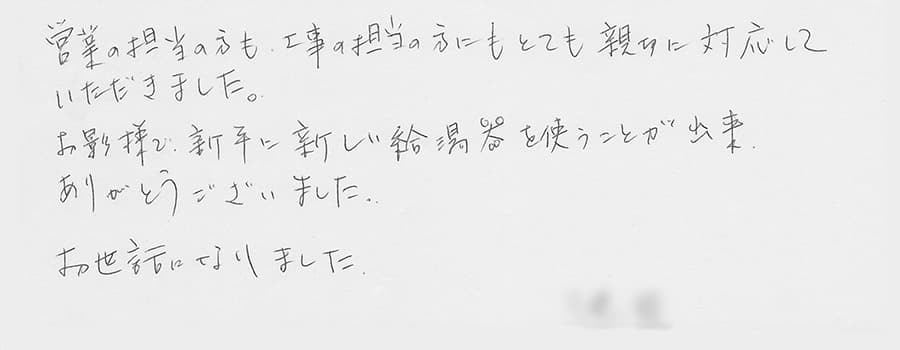 営業の担当の方も、工事の担当の方にもとても親切に対応して
いただきました。
お影様で、新年に新しい給湯器を使うことが出来、
ありがとうございました。
お世話になりました。